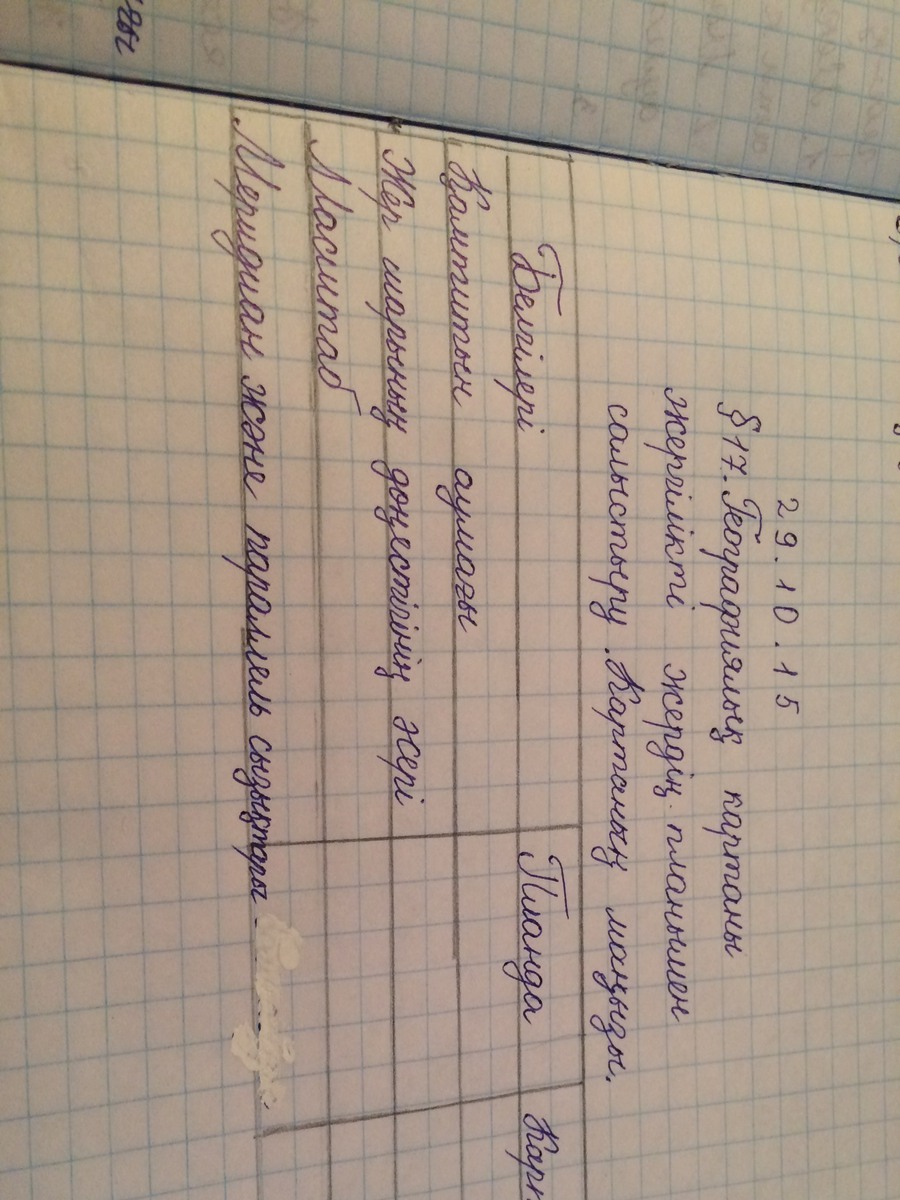 29.10.15
§17. Географиялық картаны
жергілікті жердің планымен
салыстыру. Картаның маңызы.
Белгілері Планда
Қамтитын аумағы
Жер шарының дөңестігінің жері
Масштаб
Меридиан және параллель сызықтары